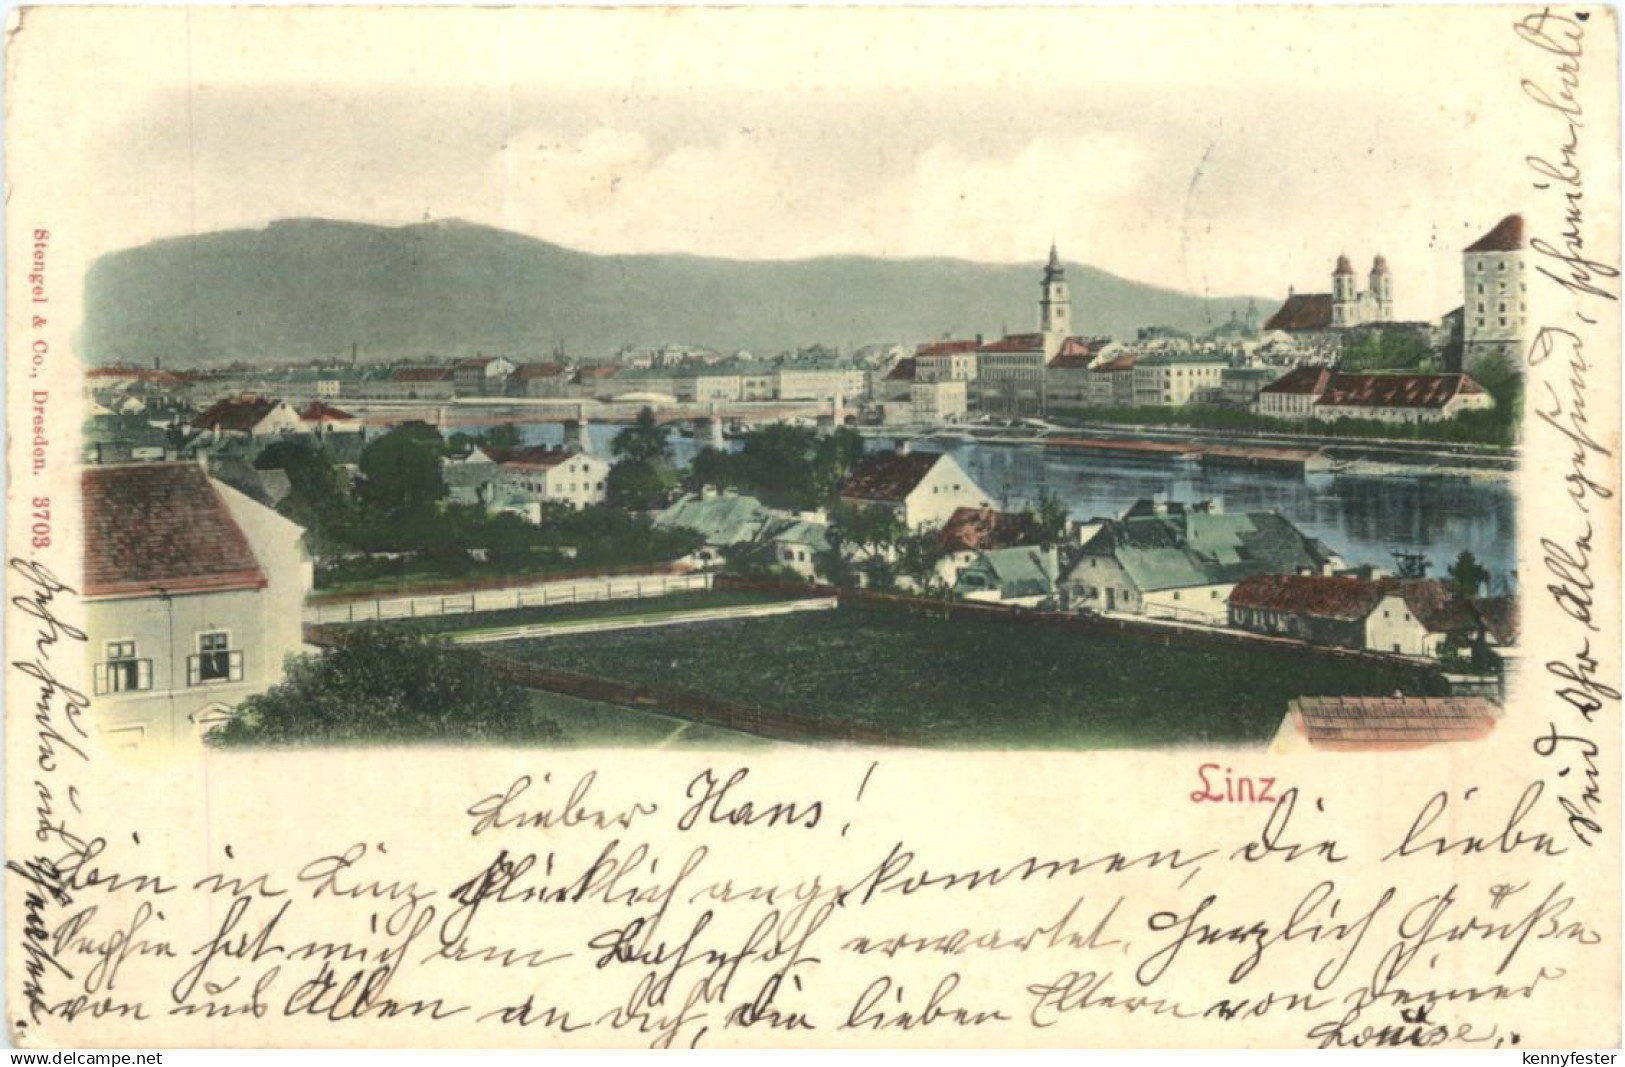 Stengel & Co., Dresden. 3703.
Linz.
Lieber Hans!
Bin in Linz glücklich angekommen, die liebe
Sophie hat mich am Bahnhof erwartet. Herzlich Grüße
von uns Allen an dich, die lieben Eltern von Deiner
Louise.
Seid Ihr Alle gesund, schreibe bald.
Gehe heute ins
delcampe.net
kennyfester